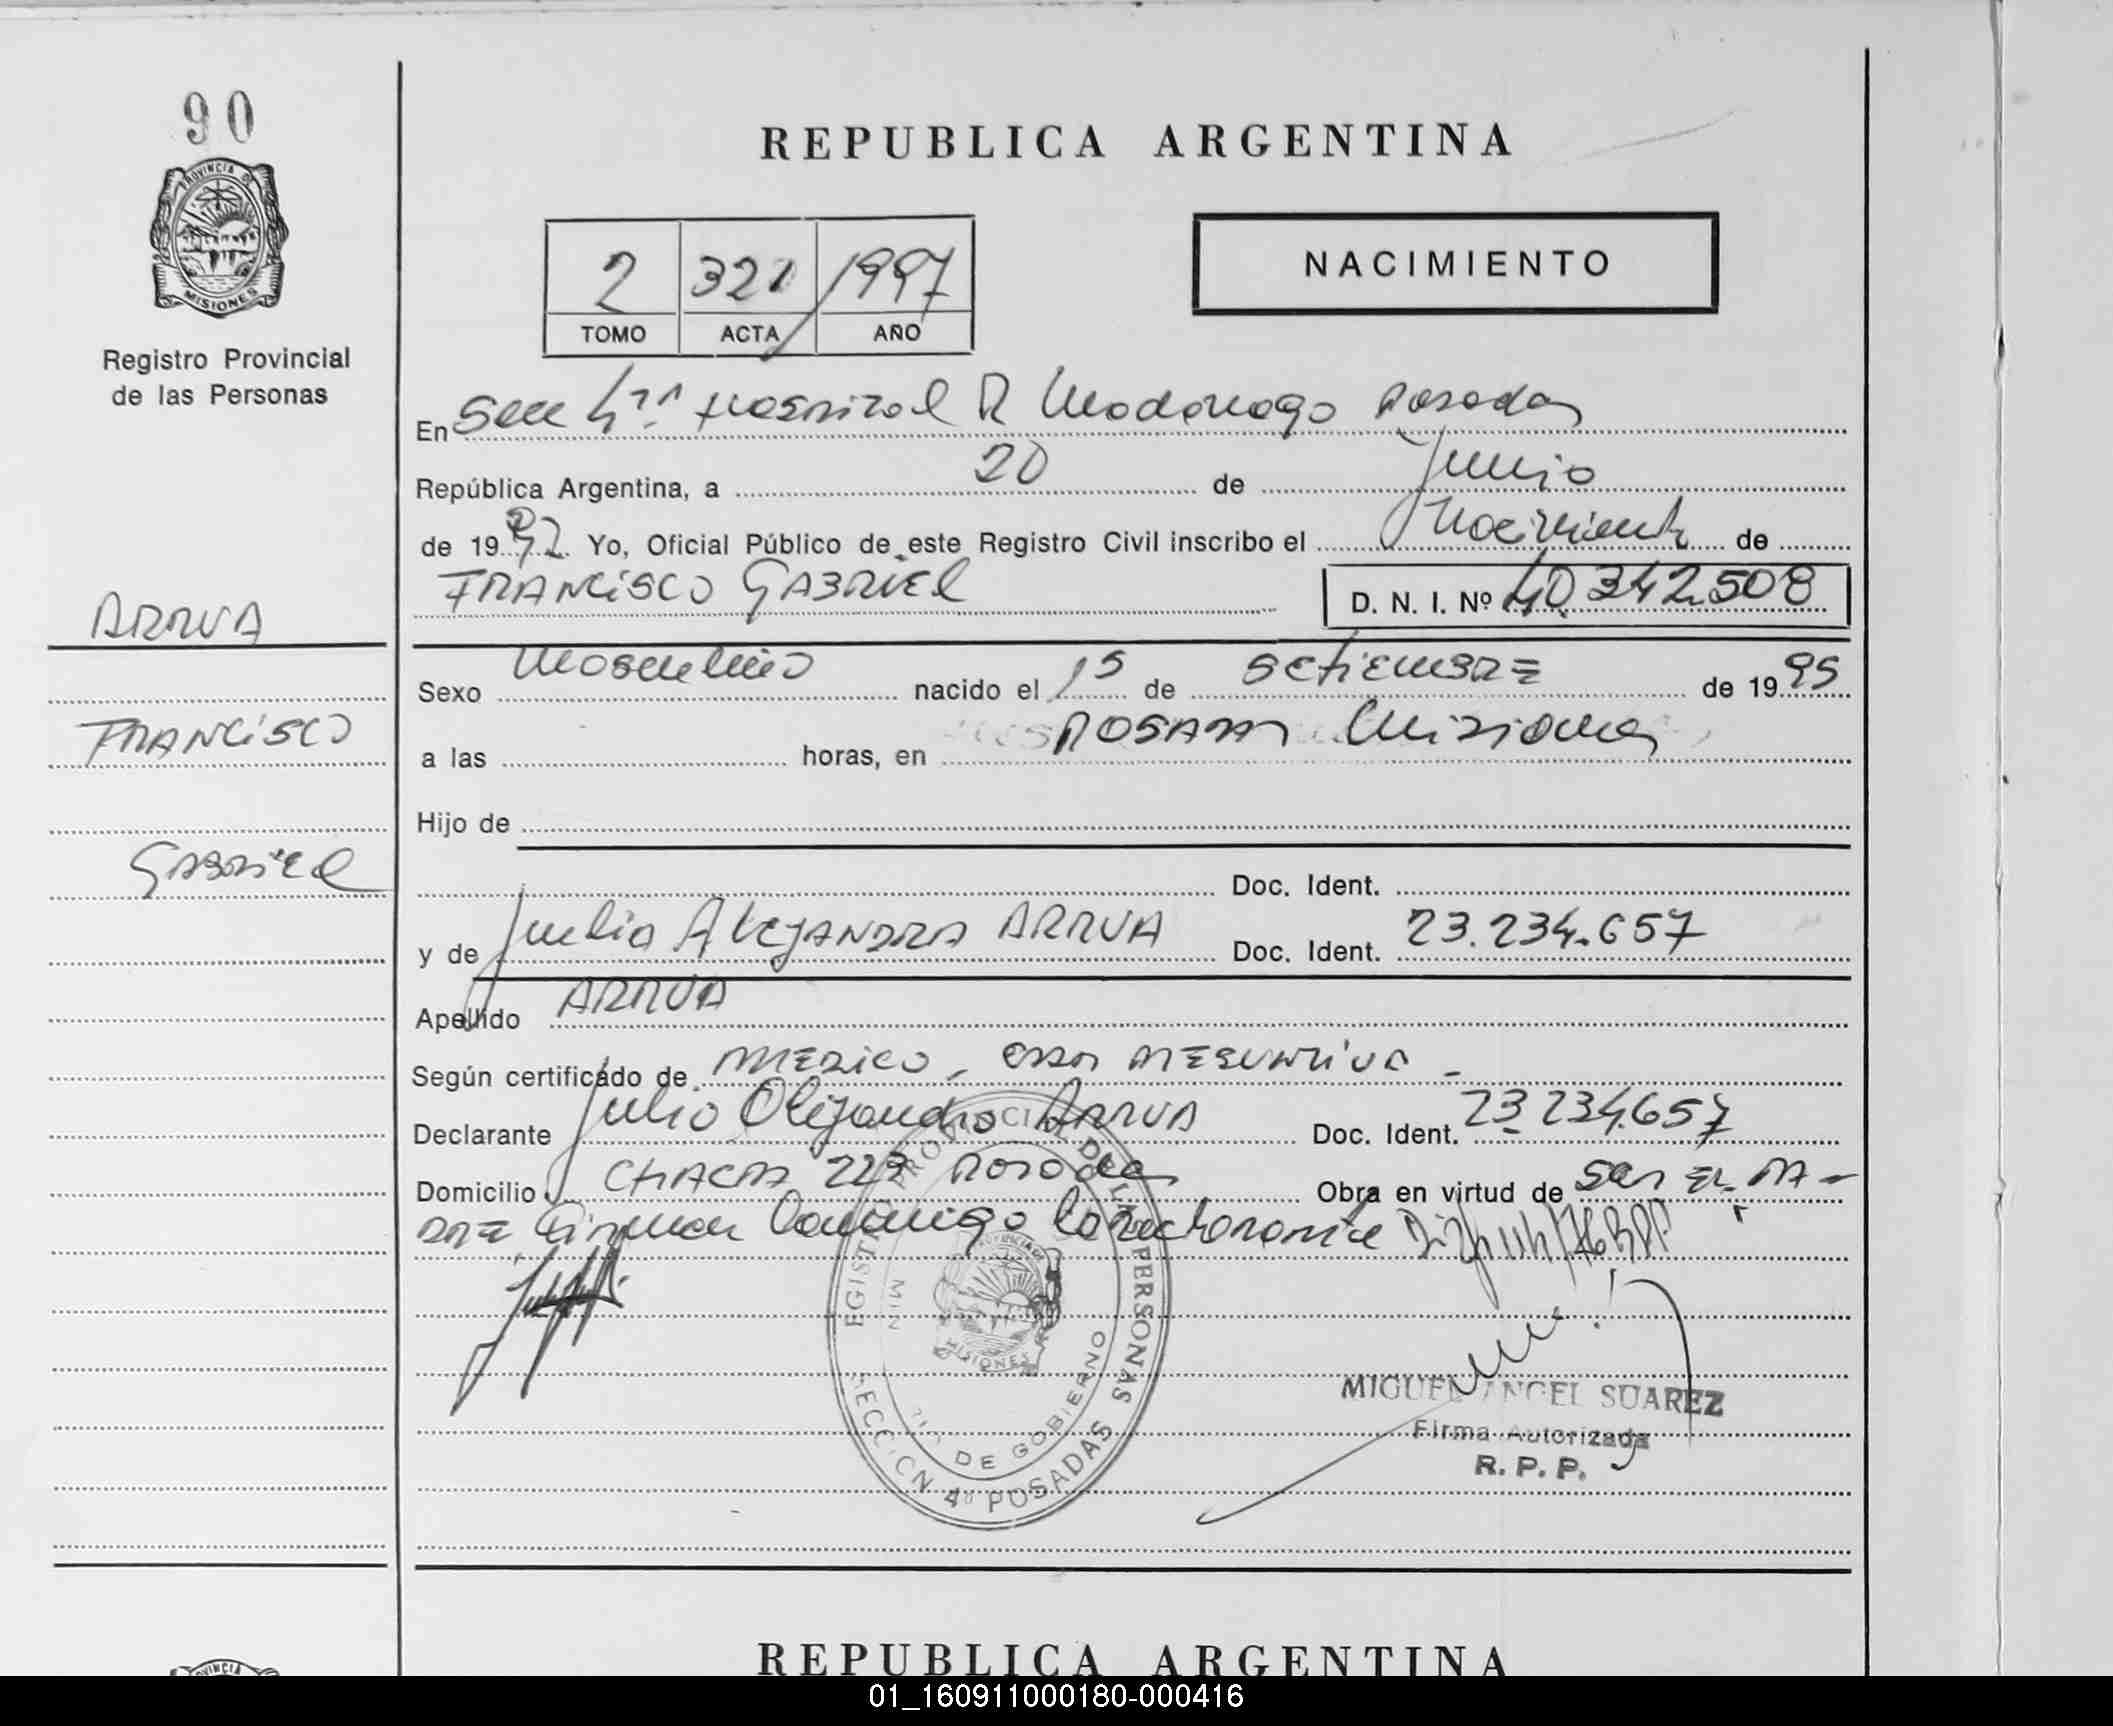 90
PROVINCIA DE
MISIONES
Registro Provincial
de las Personas
REPUBLICA ARGENTINA
2 321 1997
TOMO ACTA AÑO
NACIMIENTO
En Secc 4ta Hospital R Madariaga Posadas
República Argentina, a 20 de Junio
de 1997 Yo, Oficial Público de este Registro Civil inscribo el Nacimiento de
FRANCISCO GABRIEL
D. N. I. Nº 40.342.508
ARRUA
FRANCISCO
GABRIEL
Sexo Masculino nacido el 15 de SETIEMBRE de 1995
a las horas, en POSADAS Misiones
Hijo de
Doc. Ident.
y de Julia Alejandra ARRUA Doc. Ident. 23.234.657
Apellido ARRUA
Según certificado de MEDICO
Declarante Julia Alejandra ARRUA Doc. Ident. 23.234.657
Domicilio CHACRA Posadas Obra en virtud de SER EL PA-
DRE
REGISTRO PROVINCIAL DE LAS PERSONAS
MIN DE GOBIERNO
MISIONES
SECCION 4º POSADAS
MIGUEL ANGEL SUAREZ
Firma Autorizada
R. P. P.
REPUBLICA ARGENTINA
01_160911000180-000416